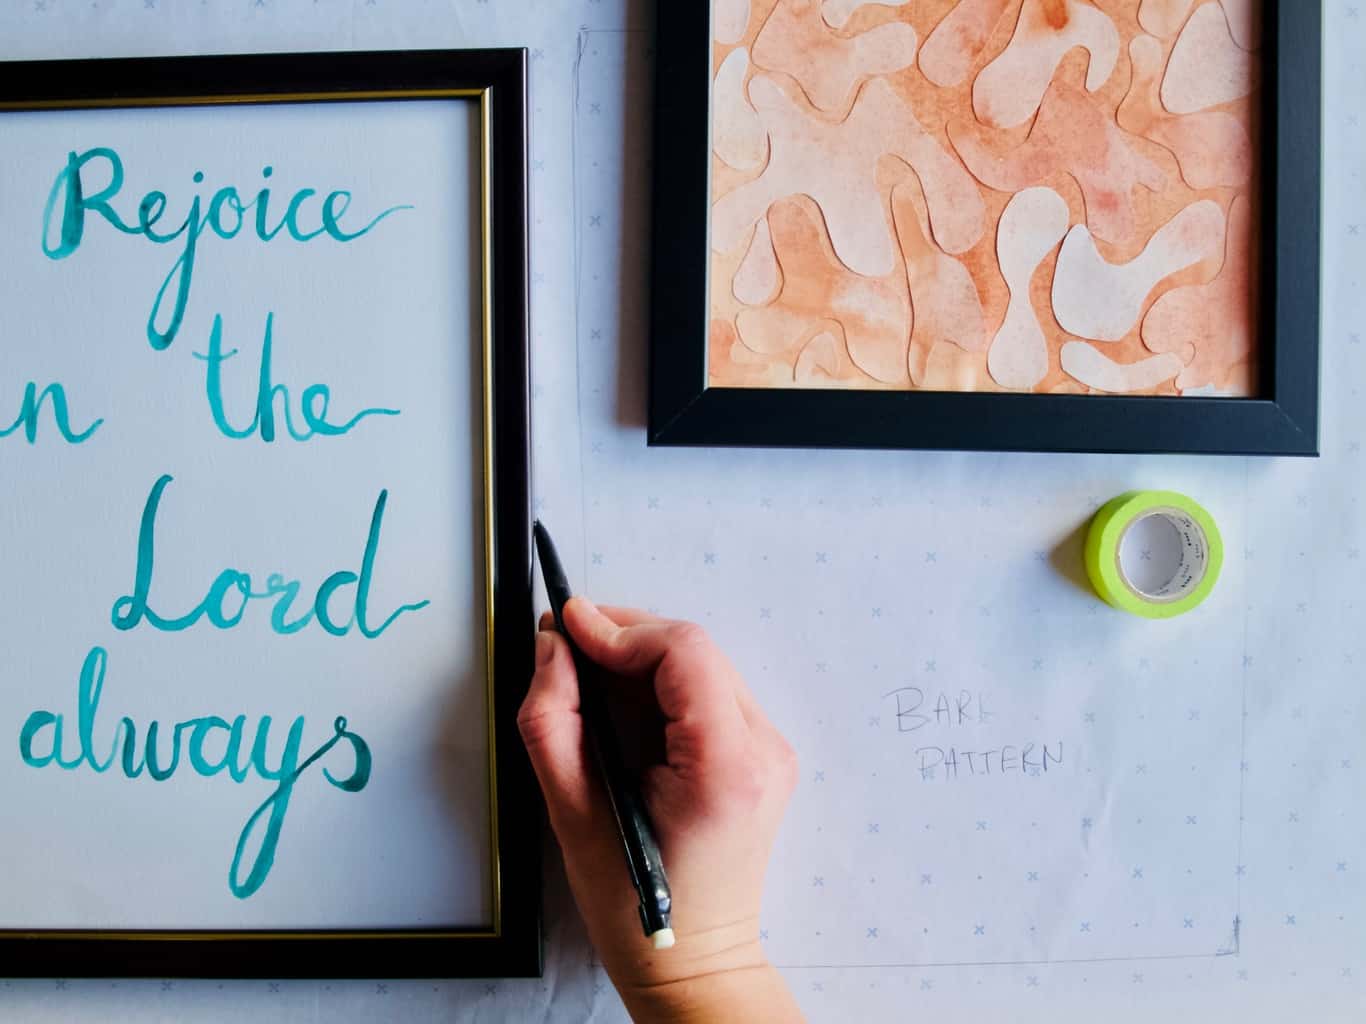 Rejoice
in the
Lord
always
BARK
PATTERN